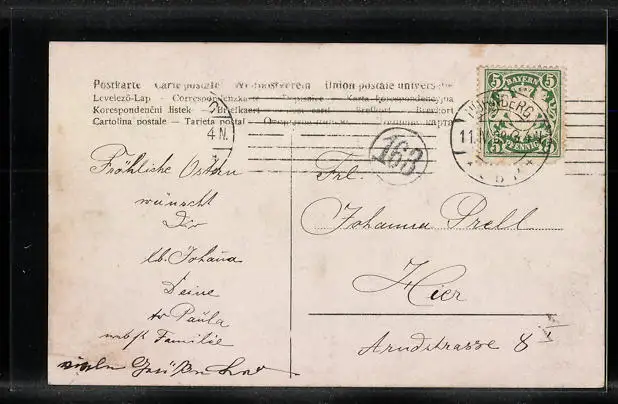 Postkarte Carte postale Weltpostverein Union postale universelle
Levelező-Lap - Correspondenzkarte - Dopisnice - Karta korespondencyjna
Korespondenční listek - Briefkaart - Post card - Brefkort - Brevkort
Cartolina postale - Tarjeta postal
5 BAYERN 5
PFENNIG
NÜRNBERG
4 N.
163
Fröhliche Ostern
wünscht
Dir
lb. Johana
Deine
Paula
nebst Familie
viele Grüße
Frl.
Johanna Prell
Hier
Arndstrasse 8
I